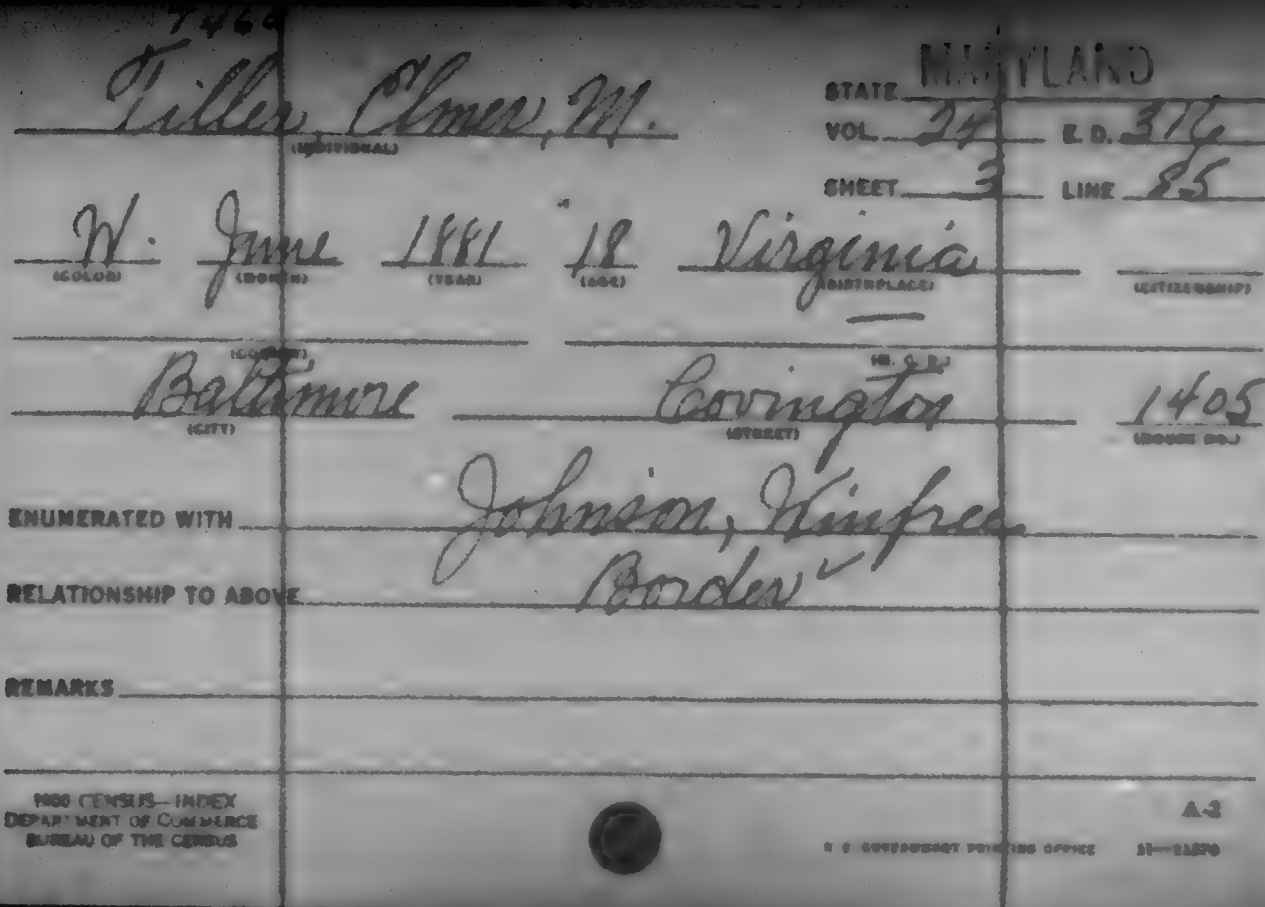 Tiller, Elmer, M.
(INDIVIDUAL)
STATE MARYLAND
VOL. 24 E. D. 376
SHEET 3 LINE 85
W. June 1881 18 Virginia
(COLOR) (MONTH) (YEAR) (AGE) (BIRTHPLACE) (CITIZENSHIP)
(COUNTY) (M. C. D.)
Baltimore Covington 1405
(CITY) (STREET) (HOUSE NO.)
ENUMERATED WITH Johnson, Winfree
RELATIONSHIP TO ABOVE Border ✓
REMARKS
1900 CENSUS—INDEX
DEPARTMENT OF COMMERCE
BUREAU OF THE CENSUS
A-2
U. S. GOVERNMENT PRINTING OFFICE